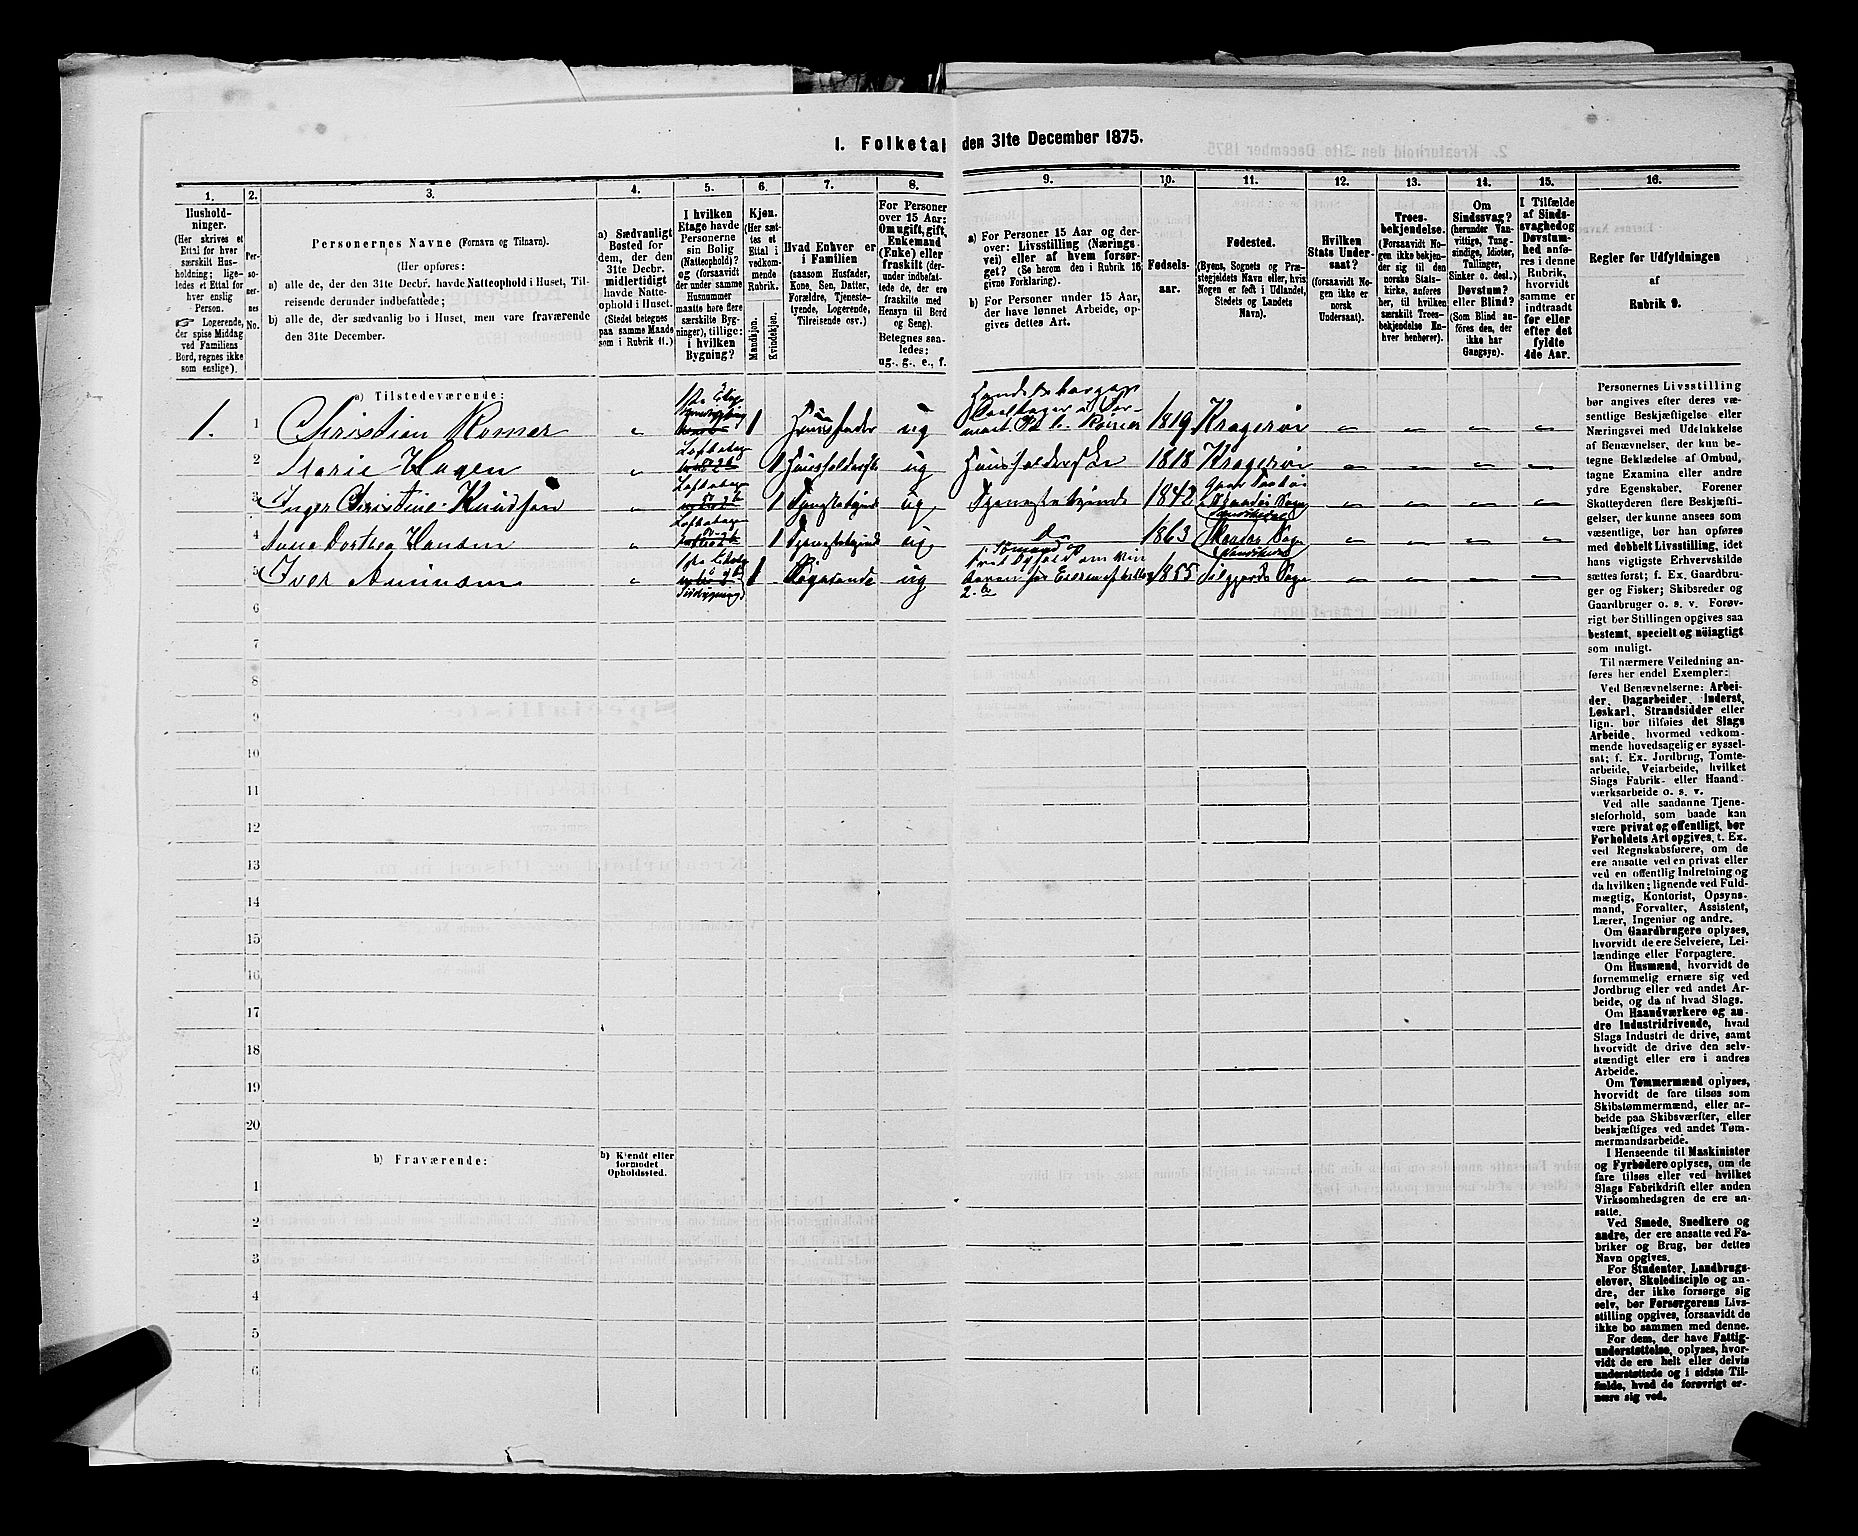 1. Folketal den 31te December 1875.
1.
Hushold-
ninger.
(Her skrives et
Ettal for hver
særskilt Hus-
holdning; lige-
ledes et Ettal
for hver
enslig
Person.
☞ Logerende,
der spise Middag
ved Familiens
Bord, regnes ikke
som enslige).
2.
Per-
so-
ner-
nes
No.
3.
Personernes Navne (Fornavn og Tilnavn).
(Her opføres:
a) alle de, der den 31te Decbr. havde Natteophold i Huset, Til-
reisende derunder indbefattede;
b) alle de, der sædvanlig bo i Huset, men vare fraværende
den 31te December.
4.
a) Sædvanligt
Bosted for
dem, der den
31te Decbr.
midlertidigt
havde Natte-
ophold i Huset.
(Stedet betegnes
paa samme Maade
som i Rubrik 11.)
5.
I hvilken
Etage havde
Personerne
sin Bolig
(Natteophold)?
og (forsaavidt
der under samme
Husnummer
maatte høre flere
særskilte Byg-
ninger), tillige:
i hvilken
Bygning?
6.
Kjøn.
(Her sæt-
tes et
Ettal i
vedkom-
mende
Rubrik.
Mandkjøn.
Kvindekjøn.
7.
Hvad Enhver er
i Familien
(saasom Husfader,
Kone, Søn, Datter,
Forældre, Tjeneste-
tyende, Logerende,
Tilreisende osv.)
8.
For Personer
over 15 Aar:
Om ugift, gift,
Enkemand
(Enke) eller
fraskilt (der-
under indbefat-
tede de, der ere
fraskilte med
Hensyn til Bord
og Seng).
Betegnes saa-
ledes:
ug., g., e., f.
9.
a) For Personer 15 Aar og der-
over: Livsstilling (Nærings-
vei) eller af hvem forsør-
get? (Se herom den i Rubrik 16
givne Forklaring).
b) For Personer under 15 Aar,
der have lønnet Arbeide, op-
gives dettes Art.
10.
Fødsels-
aar.
11.
Fødested.
(Byens, Sognets og Præ-
stegjeldets Navn eller, hvis
Nogen er født i Udlandet,
Stedets og Landets
Navn).
12.
Hvilken
Stats Under-
saat?
(forsaavidt No-
gen ikke er
norsk
Undersaat).
13.
Troes-
bekjendelse.
(Forsaavidt No-
gen ikke bekjen-
der sig til den
norske Stats-
kirke, anføres
her, til hvilken
særskilt Troes-
bekjendelse En-
hver henhører).
14.
Om
Sindssvag?
(herunder Van-
vittige, Tung-
sindige, Idioter,
Tullinger,
Sinker o. desl.)
Døvstum?
eller Blind?
(Som Blind an-
føres den, der
ikke har
Gangsyn).
15.
I Tilfælde
af Sinds-
svaghed og
Døvstum-
hed anfø-
res i denne
Rubrik,
hvorvidt
samme er
indtraadt
før eller
efter det
fyldte
4de Aar.
16.
Regler for Udfyldningen
af
Rubrik 9.
a) Tilstedeværende:
1. 1 Christian Romer " 1 Huusfader ug 1819 Kragerö — — — —
2 Marie Hagen " 1 Huusholderske ug Huusholderske 1818 Kragerö — — — —
3 Inger Christine Knudsen " 1 Tjenestetyende ug Tjenestetyende 1842 — — — —
4 Anna Dorthea Hansen " 1 Tjenestetyende ug Do 1863 — — — —
5 Iver Amundsen " 1 Logerende ug 1855 Sogn — — — —
6
7
8
9
10
11
12
13
14
15
16
17
18
19
20
b) Fraværende:
b) Kjendt eller
formodet
Opholdssted.
1
2
3
4
5
6
Personernes Livsstilling
bør angives efter deres væ-
sentlige Beskjæftigelse eller
Næringsvei med Udelukkelse
af Benævnelser, der kun be-
tegne Beklædelse af Ombud,
tagne Examina eller andre
ydre Egenskaber. Forener
Skatteyderen flere Beskjæfti-
gelser, der kunne ansees som
væsentlige, bør han opføres
med dobbelt Livsstilling, idet
hans vigtigste Erhvervskilde
sættes først; f. Ex. Gaardbru-
ger og Fisker; Skibsreder og
Gaardbruger o. s. v. Forøv-
rigt bør Stillingen opgives saa
bestemt, specielt og nöiagtigt
som muligt.
Til nærmere Veiledning an-
føres her endel Exempler:
Ved Benævnelserne: Arbei-
der, Dagarbeider, Inderst,
Løskarl, Strandsidder eller
lign. bør tilføies det Slags
Arbeide, hvormed vedkom-
mende hovedsagelig er syssel-
sat; f. Ex. Jordbrug, Tomte-
arbeide, Veiarbeide, hvilket
Slags Fabrik- eller Haand-
værksarbeide o. s. v.
Ved alle saadanne Tjene-
steforhold, som baade kan
være privat og offentligt, bør
Forholdets Art opgives, t. Ex.
ved Regnskabsførere, om de
ere ansatte ved en privat eller
ved en offentlig Indretning og
da hvilken; lignende ved Fuld-
mægtig, Kontorist, Opsyns-
mand, Forvalter, Assistent,
Lærer, Ingeniør og andre.
Om Gaardbrugere oplyses,
hvorvidt de ere Selveiere, Lei-
lændinge eller Forpagtere.
Om Husmænd, hvorvidt de
fornemmelig ernære sig ved
Jordbrug eller ved andet Ar-
beide, og da af hvad Slags.
Om Haandværkere og an-
dre Industridrivende, hvad
Slags Industri de drive, samt
hvorvidt de drive den selv-
stændigt eller ere i andres
Arbeide.
Om Tømmermænd oplyses,
hvorvidt de fare tilsøs som
Skibstømmermænd, eller ar-
beide paa Skibsværfter, eller
beskjæftiges ved andet Tøm-
mermandsarbeide.
I Henseende til Maskinister
og Fyrbødere oplyses, om de
fare tilsøs eller ved hvilket
Slags Fabrikdrift eller anden
Virksomhedsgren de ere an-
satte.
Ved Smede, Snedkere og
andre, der ere ansatte ved Fa-
briker og Brug, bør dettes
Navn opgives.
For Studenter, Landbrugs-
elever, Skoledisciple og an-
dre, der ikke forsørge sig
selv, bør Forsørgerens Livs-
stilling opgives, forsaavidt de
ikke bo sammen med denne.
For dem, der have Fattig-
understøttelse, oplyses, hvor-
vidt de ere helt eller delvis
understøttede og i sidste Til-
fælde, hvad de forøvrigt er-
nære sig ved.